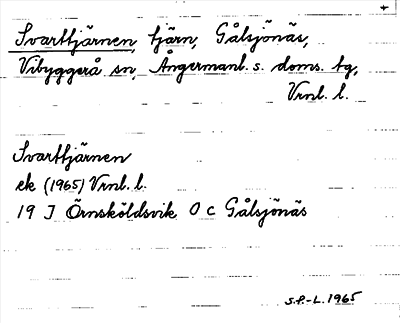 Svarttjärnen, tjärn, Gålsjönäs,
Vibyggerå sn, Ångermanl. s. doms. tg,
Vrnl. l.
Svarttjärnen
ek (1965) Vrnl. l.
19 J Örnsköldsvik 0 c Gålsjönäs
S.P.-L. 1965